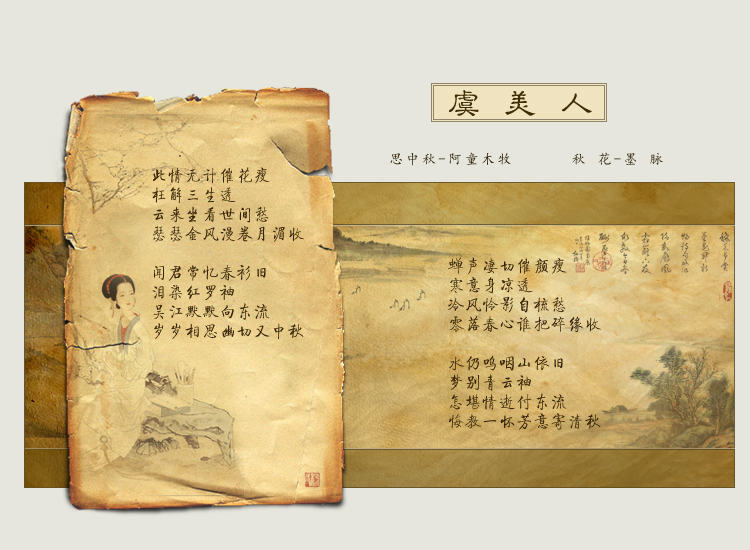 虞美人
思中秋-阿童木牧
秋 花-墨 脉
此情无计催花瘦
枉解三生透
云来坐看世间愁
瑟瑟金风漫卷月湄收
闻君常忆春衫旧
泪染红罗袖
吴江默默向东流
岁岁相思幽切又中秋
蝉声凄切催颜瘦
寒意身凉透
冷风怜影自梳愁
零落春心谁把碎缘收
水仍呜咽山依旧
梦别青云袖
怎堪情逝付东流
悔教一怀芳意寄清秋